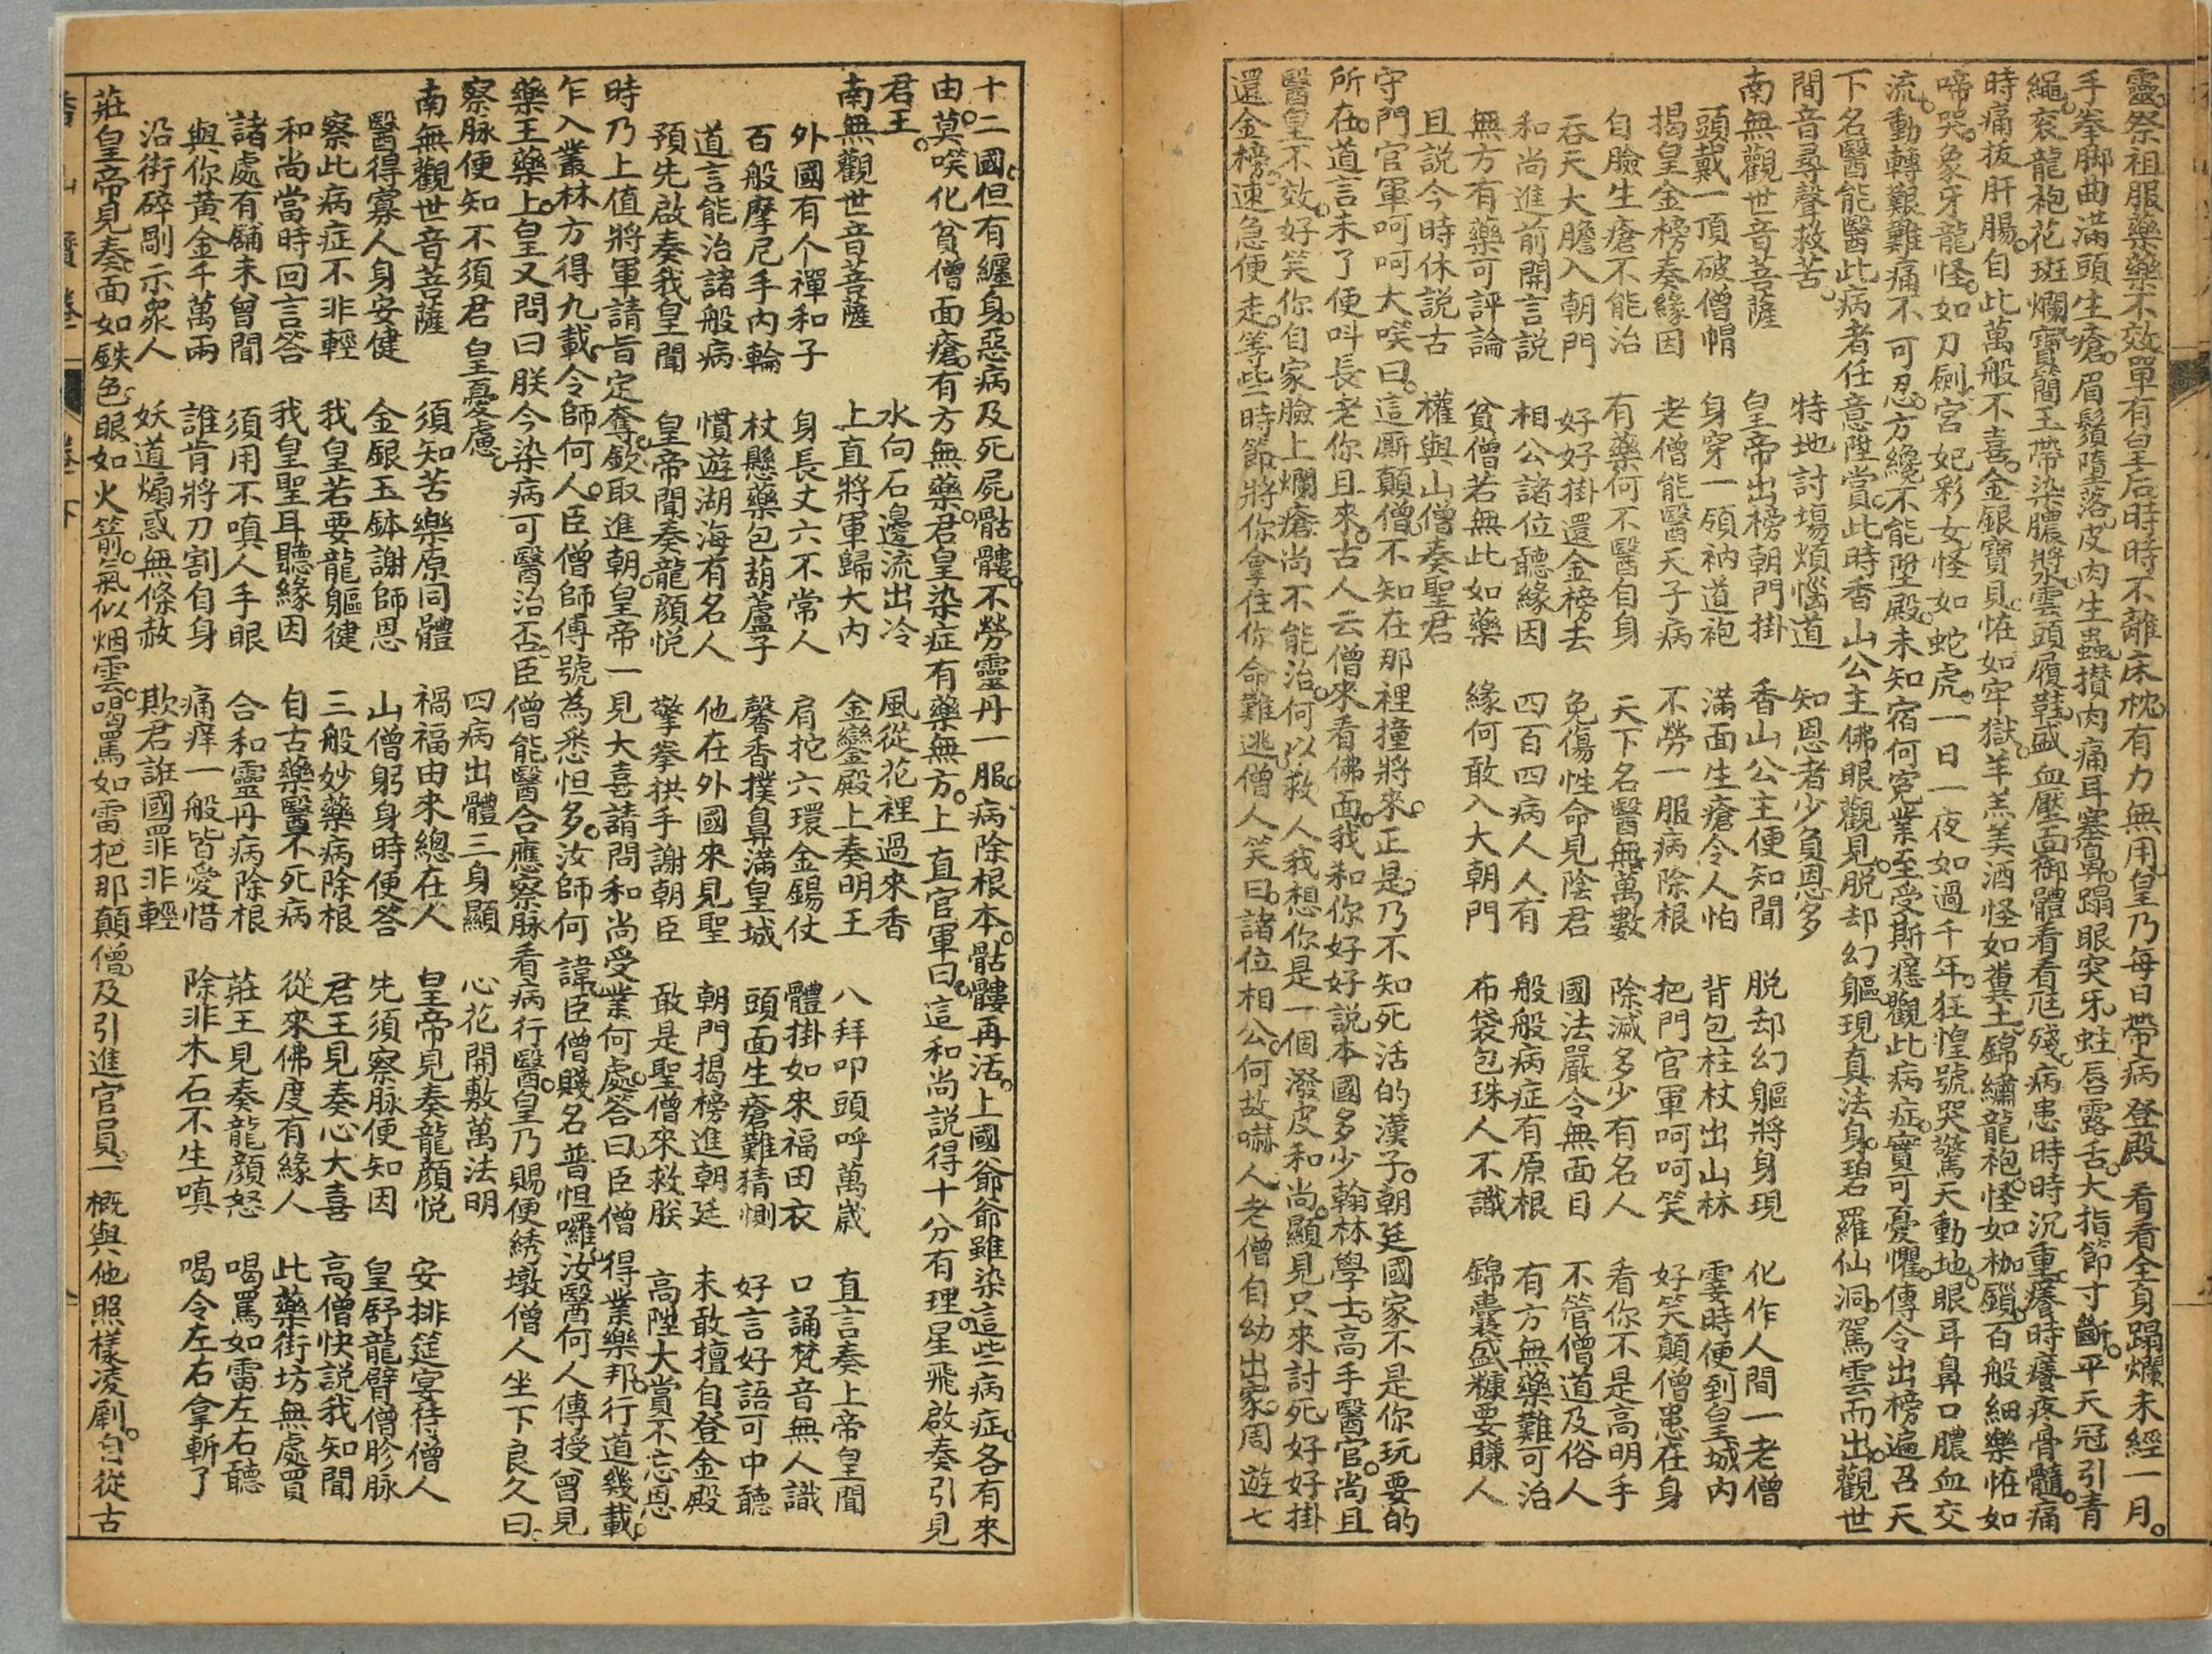 靈。祭祖服藥藥不效。單有皇后時時不離床枕。有力無用。皇乃每日帶病登殿。看看全身蹋爛。未經一月。
手拳脚曲。滿頭生瘡。眉鬚墮落。皮肉生蟲。攅肉痛。耳塞鼻蹋。眼突牙蛀。唇露舌。大指節寸斷。平天冠引青
繩。衮龍袍花斑爛。寶間玉帶染膿漿。雲頭履鞋盛血。壓面御體看看尫殘。病患時時沉重。癢時癢疼骨髓。痛
時痛拔肝腸。自此萬般不喜。金銀寶貝怪如牢獄。羊羔美酒怪如糞土。錦繡龍袍怪如枷鎖。百般細樂怪如
啼哭。象牙龍怪如刀劍。宮妃彩女怪如蛇虎。一日一夜如過千年。狂惶號哭驚天動地。眼耳鼻口膿血交
流。動轉艱難。痛不可忍。方纔不能陞殿。未知宿何寃業。至受斯癋。觀此病症。實可憂懼。傳令出榜遍召天
下名醫。能醫此病者任意陞賞。此時香山公主佛眼觀見。脱却幻軀。現真法身。碧羅仙洞。駕雲而出。觀世
間音尋聲救苦。 特地討塲煩惱道 知恩者少負恩多
南無觀世音菩薩 皇帝出榜朝門掛 香山公主便知聞 脱却幻軀將身現 化作人間一老僧
頭戴一頂破僧帽 身穿一領衲道袍 滿面生瘡令人怕 背包柱杖出山林 霎時便到皇城内
揭皇金榜奏緣因 老僧能醫天子病 不勞一服病除根 把門官軍呵呵笑 好笑顛僧患在身
自臉生瘡不能治 有藥何不醫自身 天下名醫無萬數 除滅多少有名人 看你不是高明手
吞天大膽入朝門 好好掛還金榜去 免傷性命見陰君 國法嚴令無面目 不管僧道及俗人
和尚進前開言説 相公諸位聽緣因 四百四病人人有 般般病症有原根 有方無藥難可治
無方有藥可評論 貧僧若無此如藥 緣何敢入大朝門 布袋包珠人不識 錦囊盛糠要賺人
且説今時休説古 權與山僧奏聖君
守門官軍呵呵大唉曰。這厮顛僧。不知在那裡撞將來。正是。乃不知死活的漢子。朝廷國家不是你玩要的
所在。道言未了。便呌長老你且來。古人云僧來看佛面。我和你好好説。本國多少翰林學士。高手醫官。尚且
醫皇不效。好笑你自家臉上爛瘡尚不能治。何以救人。我想你是一個潑皮和尚。顯見只來討死。好好掛
還金榜。速急便走。等些一時節。將你拿住。你命難逃。僧人笑曰。諸位相公。何故嚇人。老僧自幼出家。周遊七
十二國。但有纏身惡病及死屍骷髏。不勞靈丹一服。病除根本。骷髏再活。上國爺爺雖染這些病症。各有來
由。莫唉化貧僧面瘡。有方無藥。君皇染症。有藥無方。上直官軍曰。這和尚説得十分有理。星飛啟奏引見
君王。 水向石邊流出冷 風從花裡過來香
南無觀世音菩薩 上直將軍歸大内 金鑾殿上奏明王 八拜叩頭呼萬歲 直言奏上帝皇聞
外國有个禪和子 身長丈六不常人 肩拕六環金錫仗 體掛如來福田衣 口誦梵音無人識
百般摩尼手内輪 杖懸藥包葫蘆子 馨香撲鼻滿皇城 頭面生瘡難猜惻 好言好語可中聽
道言能治諸般病 慣遊湖海有名人 他在外國來見聖 朝門揭榜進朝廷 未敢擅自登金殿
預先啟奏我皇聞 皇帝聞奏龍顔悦 擎拳拱手謝朝臣 敢是聖僧來救朕 高陞大賞不忘恩
時乃上值將軍請旨定奪。欽取進朝。皇帝一見大喜。請問和尚受業何處。答曰。臣僧得業樂邦。行道幾載。
乍入叢林。方得九載。令師何人。臣僧師傅號為悉怛多。汝師何諱。臣僧賤名普怛囉。汝醫何人傳授。曾見
藥王藥上。皇又問曰。朕今染病可醫治否。臣僧能醫合應察脉。看病行醫。皇乃賜便綉墩。僧人坐下良久曰。
察脉便知不須君皇憂慮。 四病出體三身顯 心花開敷萬法明
南無觀世音菩薩 須知苦樂原同體 禍福由來總在人 皇帝見奏龍顔悦 安排筵宴待僧人
醫得寡人身安健 金銀玉鉢謝師恩 山僧躬身時便答 先須察脉便知因 皇舒龍臂僧胗脉
察此病症不非輕 我皇若要龍軀徤 三般妙藥病除根 君王見奏心大喜 高僧快説我知聞
和尚當時回言答 我皇聖耳聽緣因 自古藥醫不死病 從來佛度有緣人 此藥街坊無處買
諸處有舖未曾聞 須用不嗔人手眼 合和靈丹病除根 莊王見奏龍顔怒 喝罵如雷左右聽
與你黄金千萬兩 誰肯將刀割自身 痛痒一般皆愛惜 除非木石不生嗔 喝令左右拿斬了
沿街碎剮示衆人 妖道煽惑無條赦 欺君誑國罪非輕
莊皇帝見奏。面如鉄色。眼如火箭。氣似烟雲。喝罵如雷。把那顛僧。及引進官員。一概與他照樣凌剮。自從古